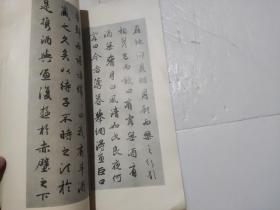 在地仰見明月顧而樂之行歌
相答已而歎曰有客無酒有
酒無肴月白風清如此良夜何
客曰今者薄暮舉網得魚巨口
諸婦婦曰我有斗酒
藏之久矣以待子不時之須於
是攜酒與魚復遊於赤壁之下